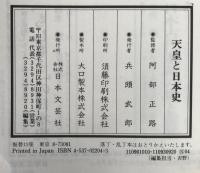 天皇と日本史
監修者 阿部正路
発行者 兵頭武郎
印刷所 須藤印刷株式会社
製本所 大口製本株式会社
発行所 株式会社 日本文芸社
〒101 東京都千代田区神田神保町1の8
電話 代表(3294)8931(営業)
(3294)8920(編集)
振替口座 東京 8-73081
落丁・乱丁本はおとりかえいたします。
Printed in Japan ISBN4-537-02204-3